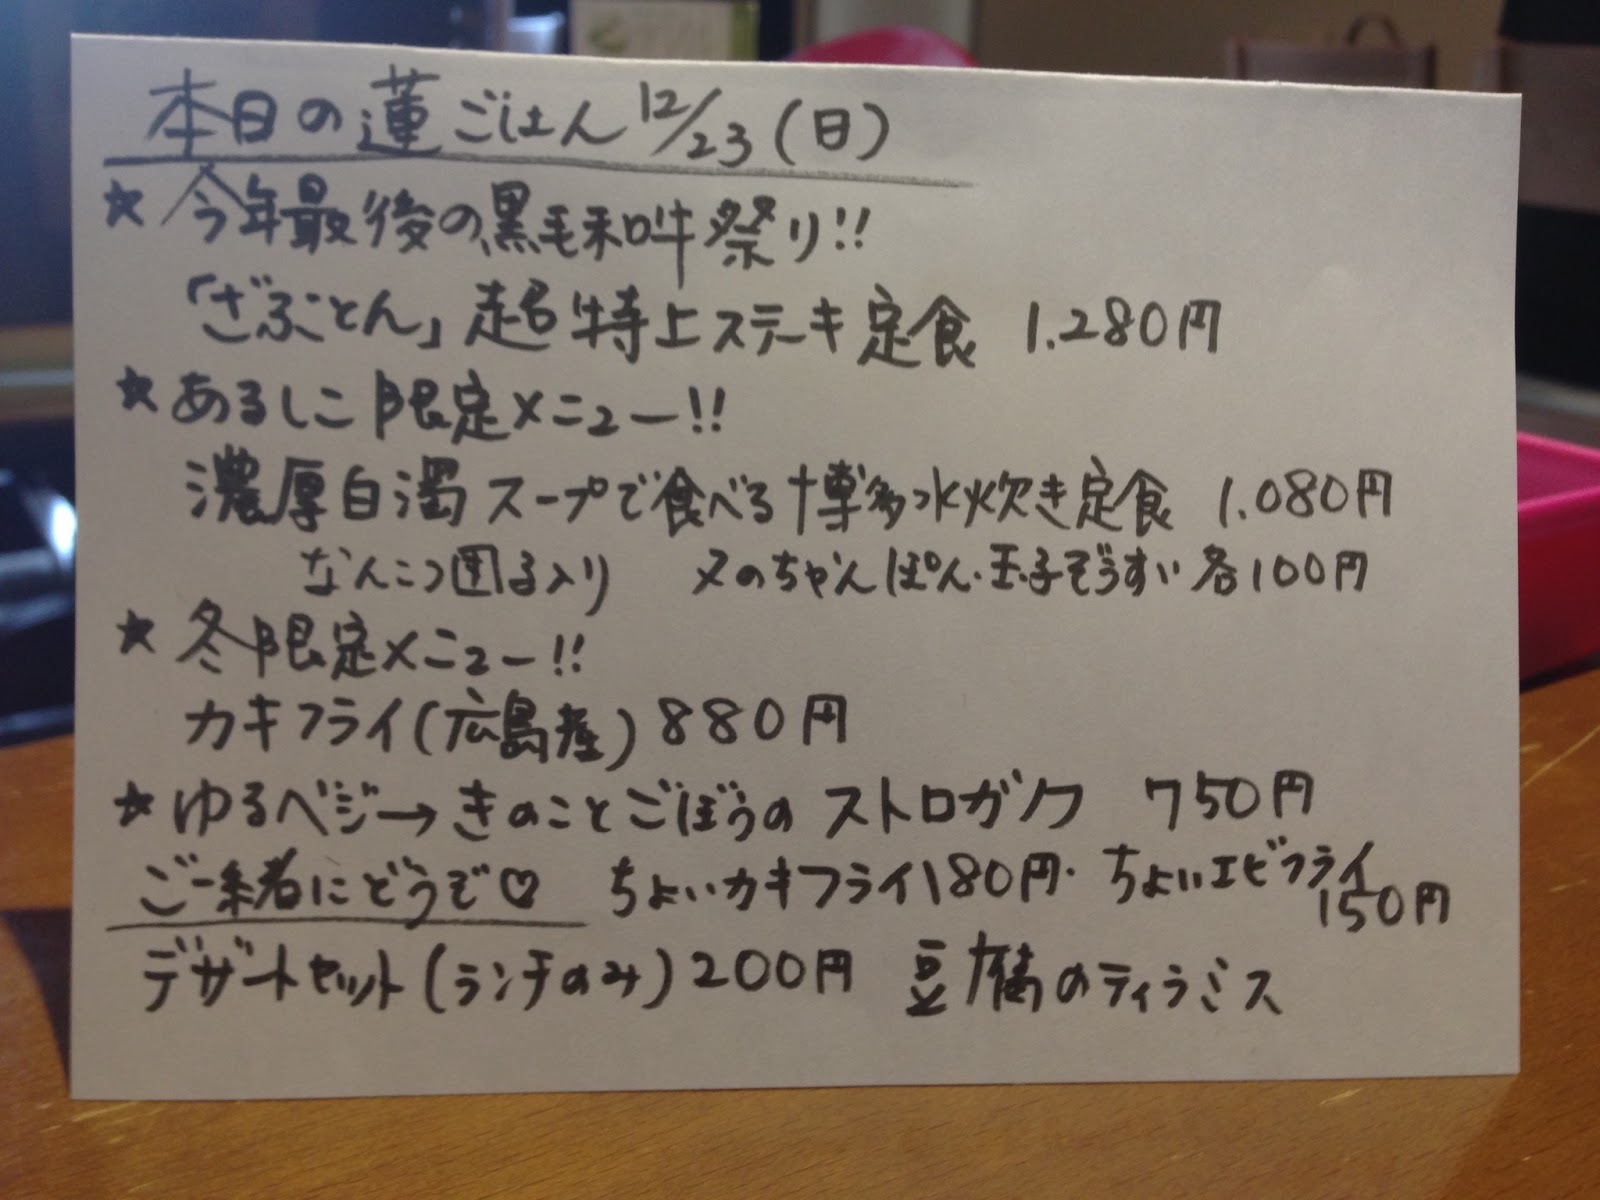 本日の蓮ごはん 12/23(日)
★今年最後の黒毛和牛祭り!!
「ざぶとん」超特上ステーキ定食 1.280円
★あるしこ限定メニュー!!
濃厚白濁スープで食べる博多水炊き定食 1.080円
なんこつ団子入り 〆のちゃんぽん・玉子ぞうすい各100円
★冬限定メニュー!!
カキフライ(広島産)880円
★ゆるベジ→きのことごぼうのストロガノフ 750円
ご一緒にどうぞ♡ ちょいカキフライ180円・ちょいエビフライ
150円
デザートセット(ランチのみ)200円 豆腐のティラミス